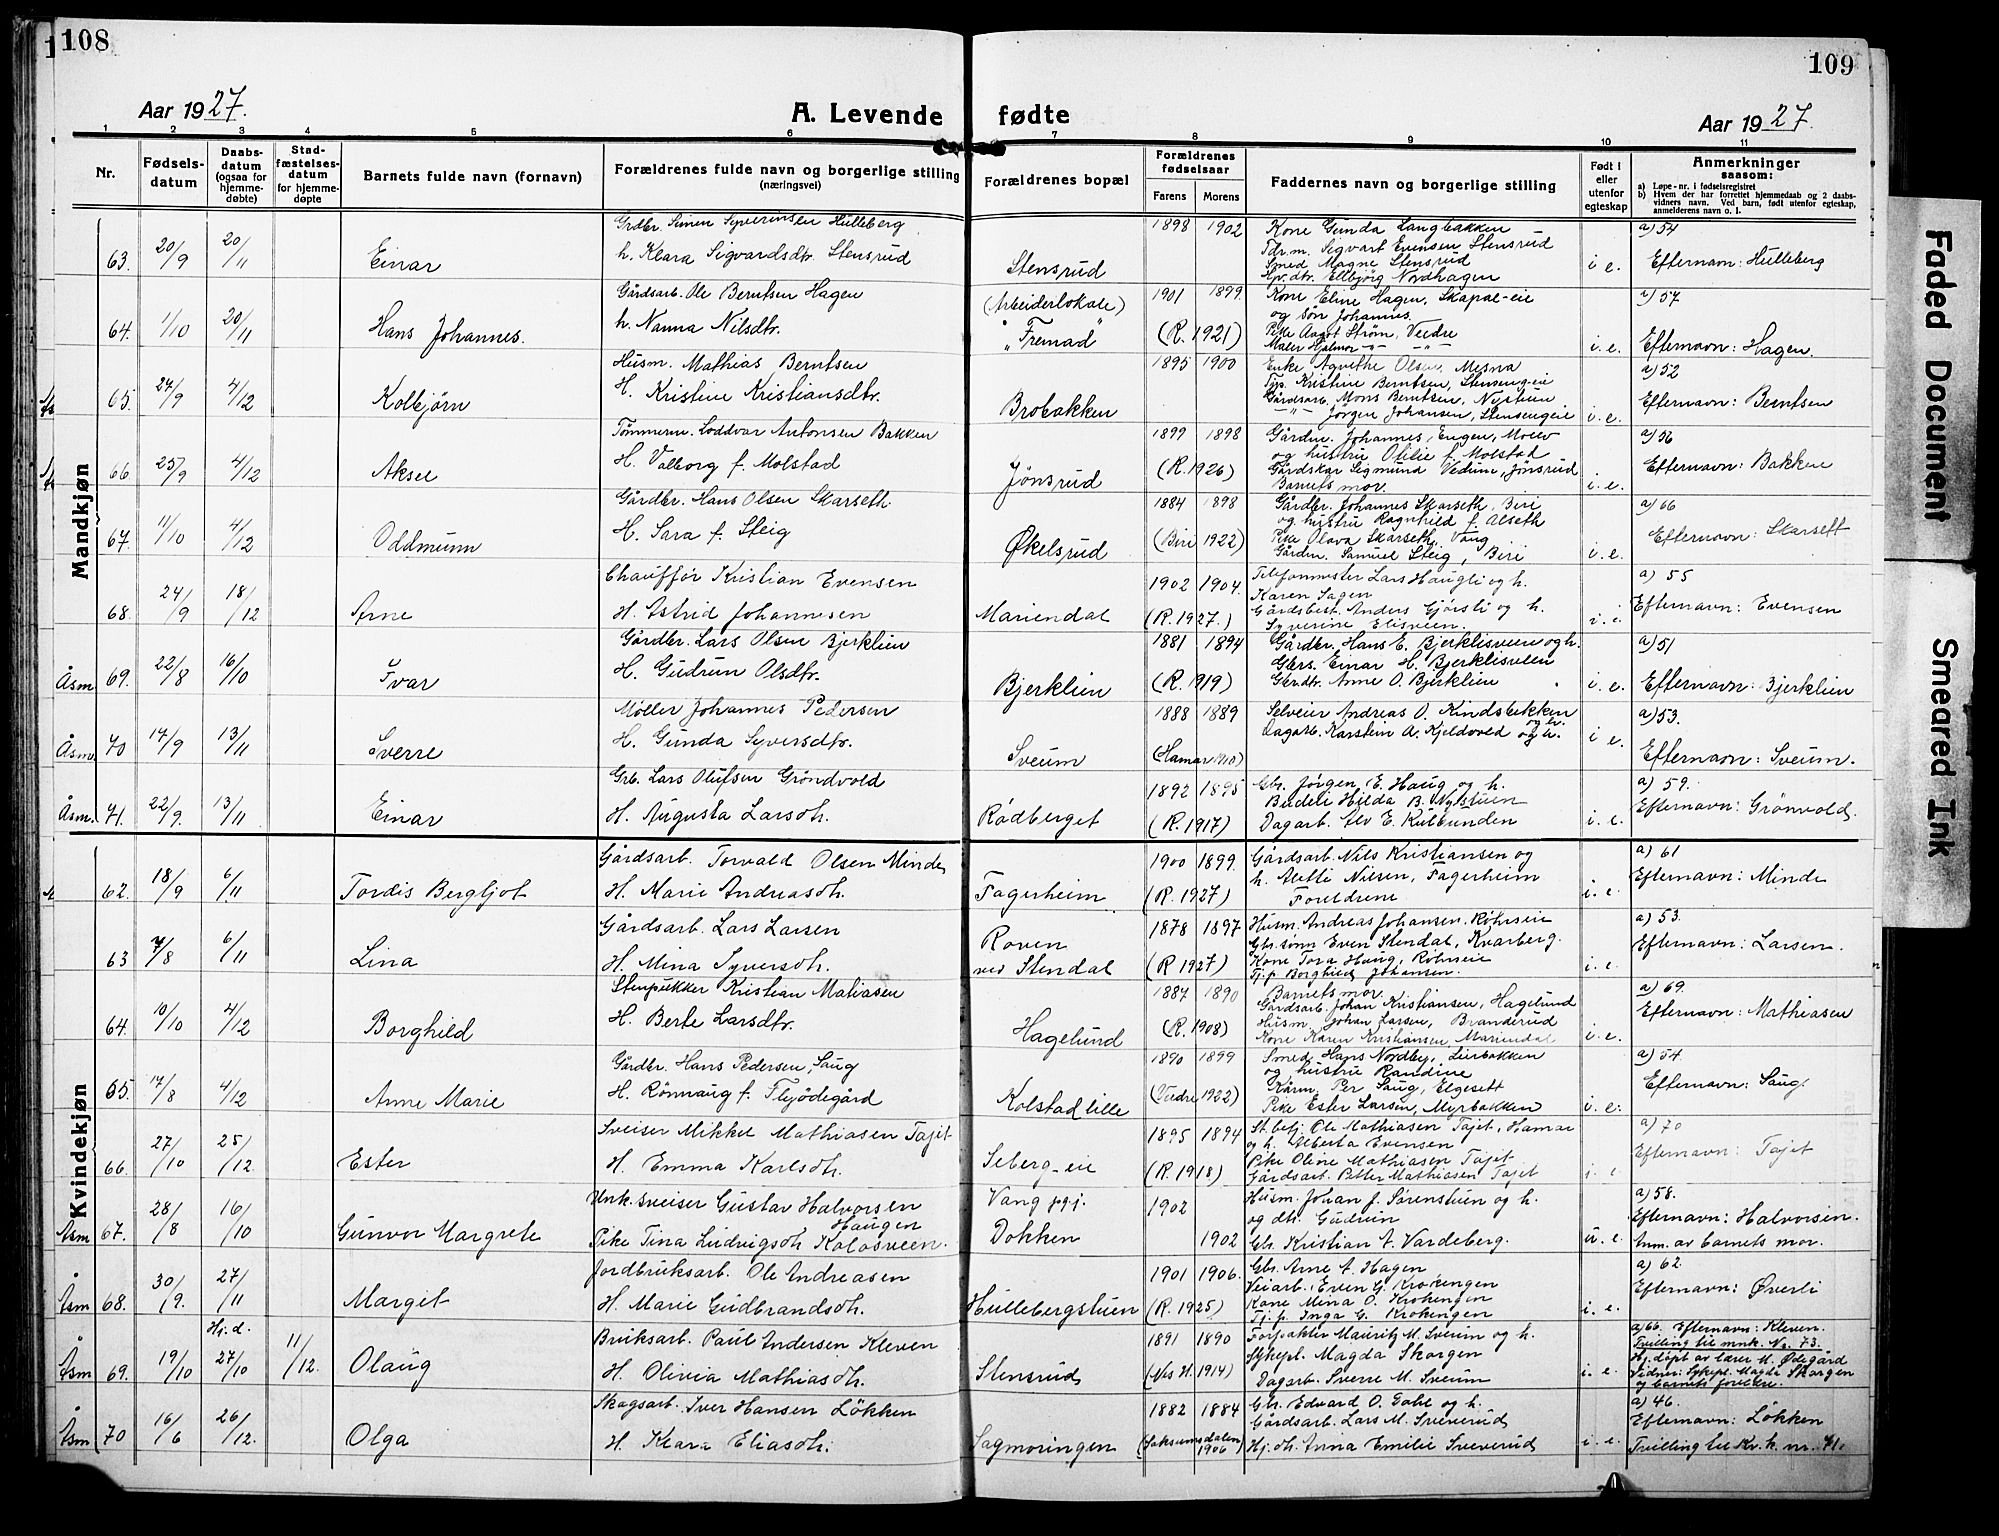 108
109
Aar 1927.
A. Levende fødte
Aar 1927.
1 2 3 4 5 6 7 8 9 10 11
Nr.
Fødselsdatum
Daabsdatum (ogsaa for hjemmedøbte)
Stadfæstelsesdatum for hjemmedøpte
Barnets fulde navn (fornavn)
Forældrenes fulde navn og borgerlige stilling (næringsvei)
Forældrenes bopæl
Forældrenes fødselsaar
Farens Morens
Faddernes navn og borgerlige stilling
Født i eller utenfor egteskap
Anmerkninger saasom:
a) Løpe-nr. i fødselsregistret
b) Hvem der har forrettet hjemmedaab og 2 daabsvidners navn. Ved barn, født utenfor egteskap, anmelderens navn o. l.
Mandkjøn
63. 20/9 20/11 Einar
Grdbr. Simen Syverinsen Hulleberg
h. Klara Sigvardsdtr. Stensrud
Stensrud
1898 1902
Kone Gunda Langbakken
Fdr.m. Sigvart Evensen Stensrud
Smed Magne Stensrud
Gbr.dtr. Ellbjørg Nordhagen
i e.
a) 54
Efternavn: Hulleberg
64. 1/10 20/11 Hans Johannes.
Gårdsarb. Ole Berntsen Hagen
h. Nanna Nilsdtr.
(Arbeiderlokale)
"Fremad"
1901 1899.
(R. 1921)
Kone Eline Hagen, Skapal-eie
og søn Johannes.
Pike Aagot Strøm, Veldre
Maler Hjalmar -"- -"-
i. e.
a) 57
Efternavn: Hagen.
65. 24/9 4/12 Kolbjørn
Husm. Mathias Berntsen
H. Kristine Kristiansdtr.
Brobakken
1895 1900
Enke Agnethe Olsen, Mesna
Tjp. Kristine Berntsen, Stensengeie
Gårdsarb. Mons Berntsen, Nystuen
-"- Jørgen Johansen, Stensengeie
i. e.
a) 52
Efternavn: Berntsen
66 25/9 4/12 Aksel
Tømmerm. Loddvar Antonsen Bakken
H. Valborg f. Molstad
Jønsrud
1899 1898
(R. 1926)
Gårdm. Johannes Engen, Moelv
og hustru Otilie f. Molstad
Gårdskar Sigmund Vedum, Jønsrud
Barnets mor.
i. e.
a) 56
Efternavn: Bakken
67. 11/10 4/12 Oddmunn
Gårdbr. Hans Olsen Skarseth.
H. Sara f. Steig
Økelsrud
1884 1898
(Biri 1922)
Gårdbr. Johannes Skarseth, Biri
og hustru Ragnhild f. Alseth
Pike Olava Skarseth, Vang
Gårdm. Samuel Steig, Biri
i. e.
a) 66
Efternavn: Skarsett
68. 24/9 18/12 Arne
Chauffør Kristian Evensen
H. Astrid Johannesen
Mariendal
1902 1904.
(R. 1927.)
Telefonmester Lars Haugli og h.
Karen Sagen
Gårdsbest. Anders Gjørsli og h.
Syverine Elisveen.
i. e.
a) 55
Efternavn: Evensen
Åsm 69. 22/8 16/10 Ivar
Gårdbr. Lars Olsen Bjerklien
H. Gudrun Olsdtr.
Bjerklien
1881 1894
(R. 1919)
Gårdbr. Hans E. Bjerklisveen og h.
Gbrs. Einar H. Bjerklisveen
Gbr.dtr. Anne O. Bjerklien
i. e.
a) 51
Efternavn: Bjerklien
Åsm. 70 17/9 13/11 Sverre
Møller Johannes Pedersen
H. Gunda Syversdtr.
Sveum
1888 1889
(Hamar 1910)
Selveier Andreas O. Kindsbakken og h.
Dagarb. Karstein A. Kjeldvold og h.
i e.
a) 53.
Efternavn: Sveum.
Åsm. 71. 22/9. 13/11 Einar
Grb. Lars Olufsen Gröndvold
H. Augusta Larsdh.
Rødberget
1892 1895
(R. 1917)
Gbr. Jørgen E. Haug og h.
Budeie Hilda B. Nystuen
Dagarb. Alv E. Kulbunden
i. e.
a) 59.
Efternavn: Grönvold.
Kvindekjøn
62. 18/9 6/11 Tordis Bergljot
Gårdsarb. Torvald Olsen Minde
H. Marie Andreasdh.
Fagerheim
1900 1899.
(R. 1927)
Gårdsarb. Nils Kristiansen og
h. Aletti Nilsen, Fagerheim
Foreldrene
i. e
a) 61
Efternavn: Minde
63 7/8 6/11 Lina
Gårdsarb. Lars Larsen
H. Mina Syversdh.
Roven
ved Stendal
1878 1897
(R 1927)
Husm. Andreas Johansen. Röhrseie
Gbr.sönn Even Stendal, Kvarberg.
Kone Tora Haug, Röhrseie
Tj.p Borghild Johansen.
i. e.
a) 53.
Efternavn: Larsen.
64. 10/10 4/12 Borghild
Stenpukker Kristian Matiasen
H. Berte Larsdtr.
Hagelund
1887 1890
(R. 1908)
Barnets mor.
Gårdsarb. Johan Kristiansen, Hagelund
Husm. Johan Larsen, Branderud
Kone Karen Kristiansen Mariendal
i. e.
a) 69.
Efternavn: Mathiasen
65. 14/8 4/12 Anne Marie
Gårdbr. Hans Pedersen Saug
H. Rönnaug f. Flyödegård
Kolstad lille
1890 1899
(Veldre 1922)
Smed Hans Nordby, Lierbakken
og hustru Randine
Kårm. Per Saug, Elgesett
Pike Ester Larsen, Myrbakken
i. e.
a) 54.
Efternavn: Saug.
66. 27/10 25/12. Ester
Sveiser Mikkel Mathiasen Tajet
H. Emma Karlsdh.
Seberg-eie
1895 1894
(R. 1918)
St.betj. Ole Mathiasen Tajet, Hamar
og h. Alberta Evensen
Pike Oline Mathiasen Tajet
Gårdsarb. Petter Mathiasen Tajet
i. e
a) 70
Efternavn: Tajet
Åsm 67. 28/8 16/10 Gunvor Margrete
Unk. sveiser Gustav Halvorsen Haugen
Pike Tina Ludvigsdh Kolosveen.
Vang pgj.
Dokken
1902
1902
Husm. Johan J. Sørenstuen og h.
og dtr. Gudrun
Gbr. Kristian A. Vardeberg.
u. e.
a) 58.
Efternavn: Halvorsen.
Anm. av barnets mor.
Åsm 68. 30/9. 27/11 Margit
Jordbruksarb. Ole Andreasen
H. Marie Gudbrandsdh.
Hullebergstuen
1901 1906.
(R. 1925)
Gbr. Arne A. Hagen
Veiarb. Even G. Krokengen
Kone Mina O. Krokengen
Tj.p. Inga G. Krokengen
i. e.
a) 62.
Efternavn: Øverli
Åsm 69. 19/10 Hj.d. 27/10 11/12. Olaug
Bruksarb. Paul Andersen Kleven
H. Olivia Mathiasdh.
Stensrud
1891 1890
(Nes H. 1914)
Forpakter Mauritz M. Sveum og h.
Sykepl. Magda Skorgen
Dagarb. Sverre M. Sveum
i. e
a) 66. Efternavn: Kleven.
Tvilling til mnk. Nr. 73.
Hj.døpt av lærer M. Ødegård
Vidner: Sykepl. Magda Skorgen
og barnets foreldre.
Åsm 70 16/6 26/12. Olga
Skogsarb. Iver Hansen Lökken
H. Klara Eliasdh.
Sagmoringen
1882 1884
(Saksumsdalen 1906)
Gbr. Edvard O. Gale og h.
Gårdsarb. Lars M. Sveverud
Hj. dh. Anna Emilie Sveverud
i. e.
a) 46.
Efternavn: Lökken
Tvilling til Kv. k. nr. 71.
Faded Document
Smeared Ink